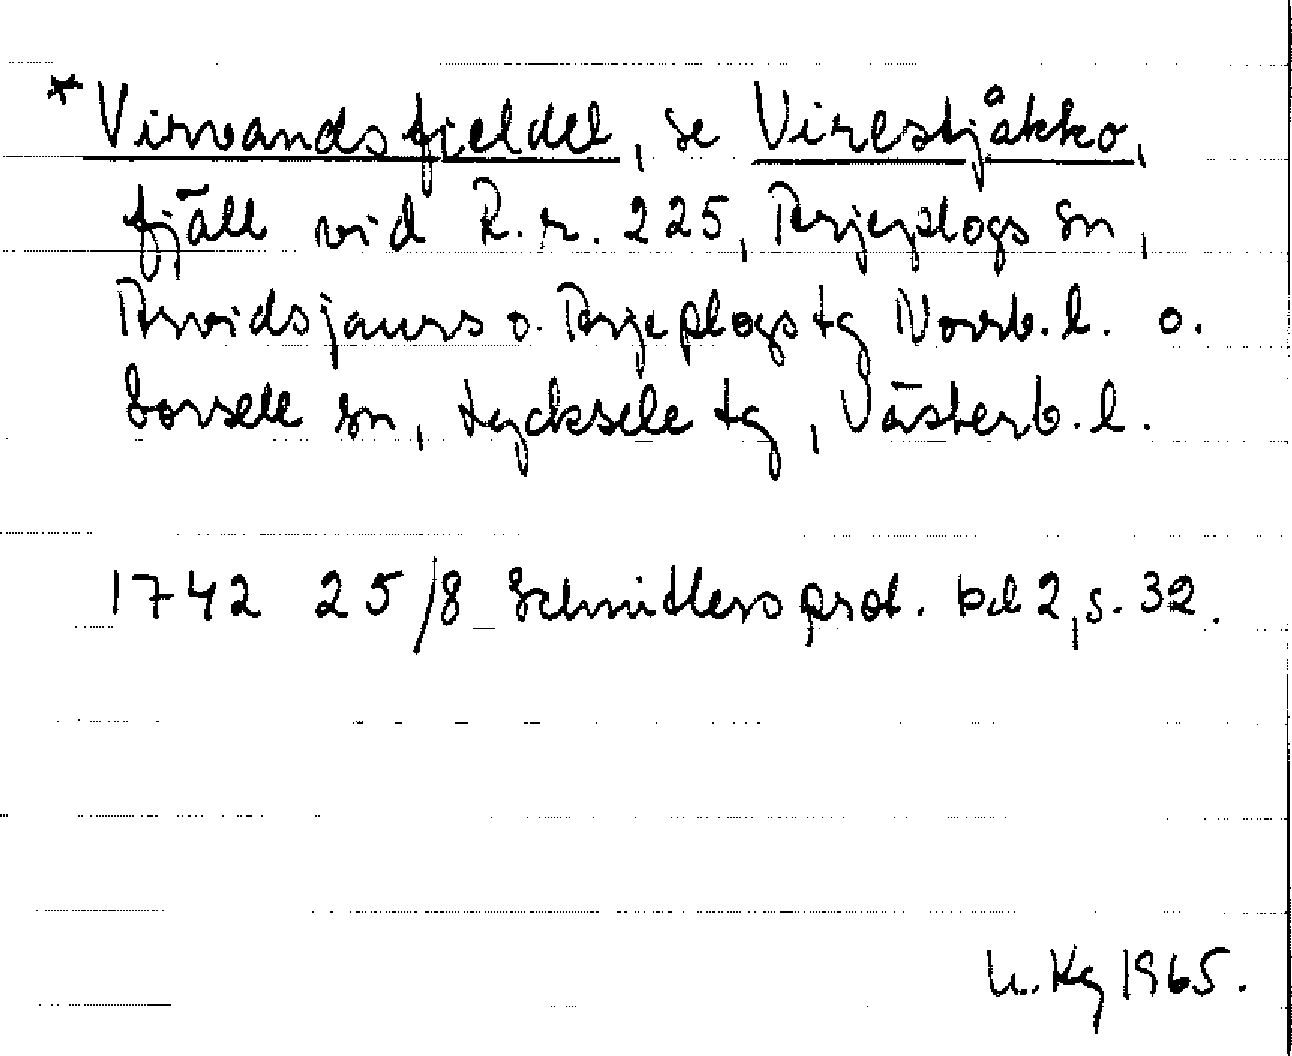 * Virvandsfjeldel, se Virestjåkko,
fjäll vid R.r. 225, Arjeplogs sn,
Arvidsjaurs o. Arjeplogs tg Norrb. l. o.
Sorsele sn, Lycksele tg, Västerb. l.
1742 25/8 Schnitlers prot. bd 2, s. 32.
Kg 1965.